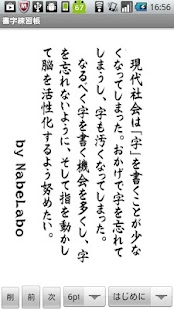 67
16:56
書字練習帳
現代社会は「字」を書くことが少な
くなってしまった。おかげで字を忘れて
しまうし、字も汚くなってしまった。
なるべく字を書く機会を多くし、字
を忘れないように、そして指を動かし
て脳を活性化するよう努めたい。
by NabeLabo
削
前
次
6pl
はじめに